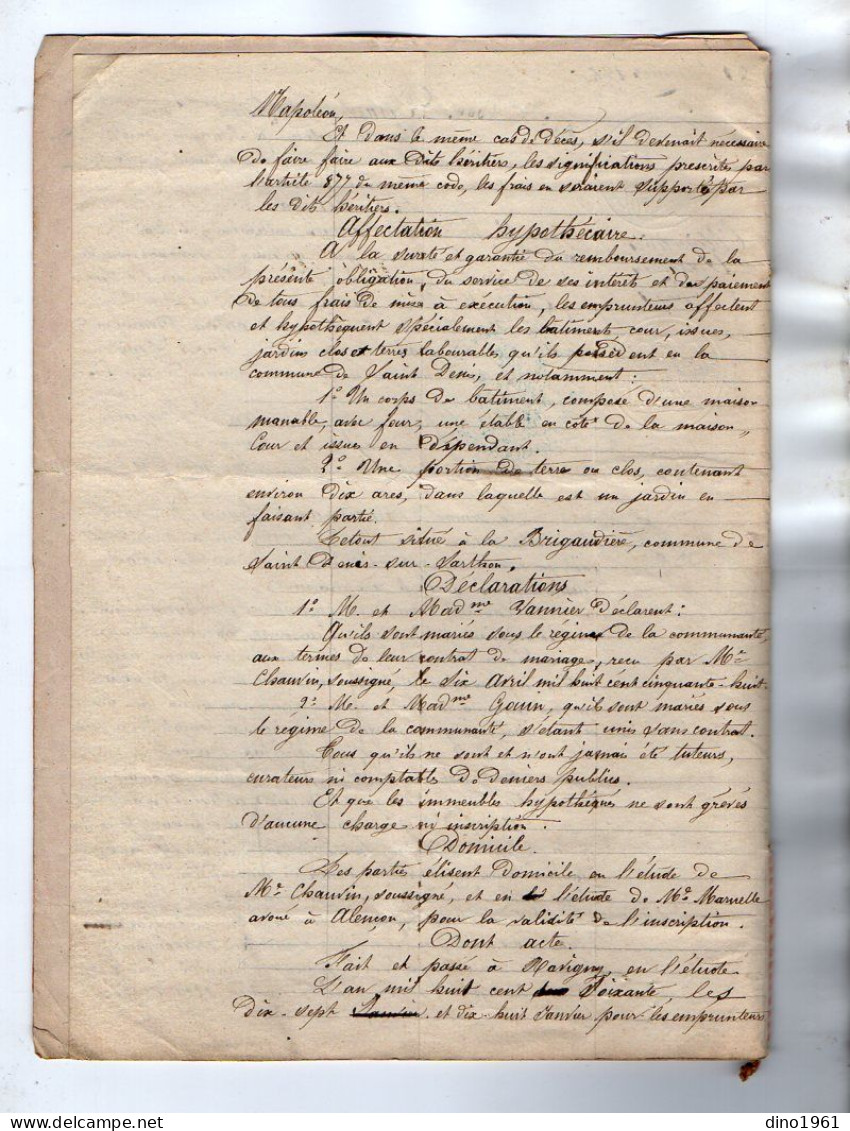 Napoléon,
Et dans le même cas de décès, s'il devenait nécessaire
de faire faire aux dits héritiers, les significations prescrites par
l'article 877 du même code, les frais en seraient supporté par
les dits héritiers.
Affectation hypothécaire.
A la sureté et garantie du remboursement de la
présente obligation, du service de ses interets et du paiement
de tous frais de mise à exécution, les emprunteurs affectent
et hypothèquent spécialement les batiments cour, issues,
jardins clos et terres labourables qu'ils possèdent en la
commune de Saint Denis, et notamment :
1° Un corps de batiment, composé d'une maison
manable, avec four, une étable en coté de la maison
Cour et issues en dépendant.
2° Une portion de terre ou clos, contenant
environ dix ares, dans laquelle est un jardin en
faisant partie.
Le tout situé à la Brigaudière, commune de
Saint Denis-sur-Sarthon.
Déclarations
1° M. et Madme Vannier déclarent :
Qu'ils sont mariés sous le régime de la communauté,
aux termes de leur contrat de mariage, reçu par Me
Chauvin, soussigné, le six Avril mil huit cent cinquante-huit.
2° M. et Madme Gouin, qu'ils sont mariés sous
le régime de la communauté, s'étant unis sans contrat.
Tous qu'ils ne sont et n'ont jamais été tuteurs,
curateurs ni comptable de deniers publics.
Et que les immeubles hypothéqués ne sont grévés
d'aucune charge ni inscription.
Domicile.
Les parties élisent domicile en l'étude de
Me Chauvin, soussigné, et en l'étude de Me Marnelle
avoué à Alençon, pour la validité de l'inscription.
Dont acte.
Fait et passé à Ravigny, en l'étude
L'an mil huit cent Soixante, les
dix-sept et dix-huit Janvier pour les emprunteurs
dino1961